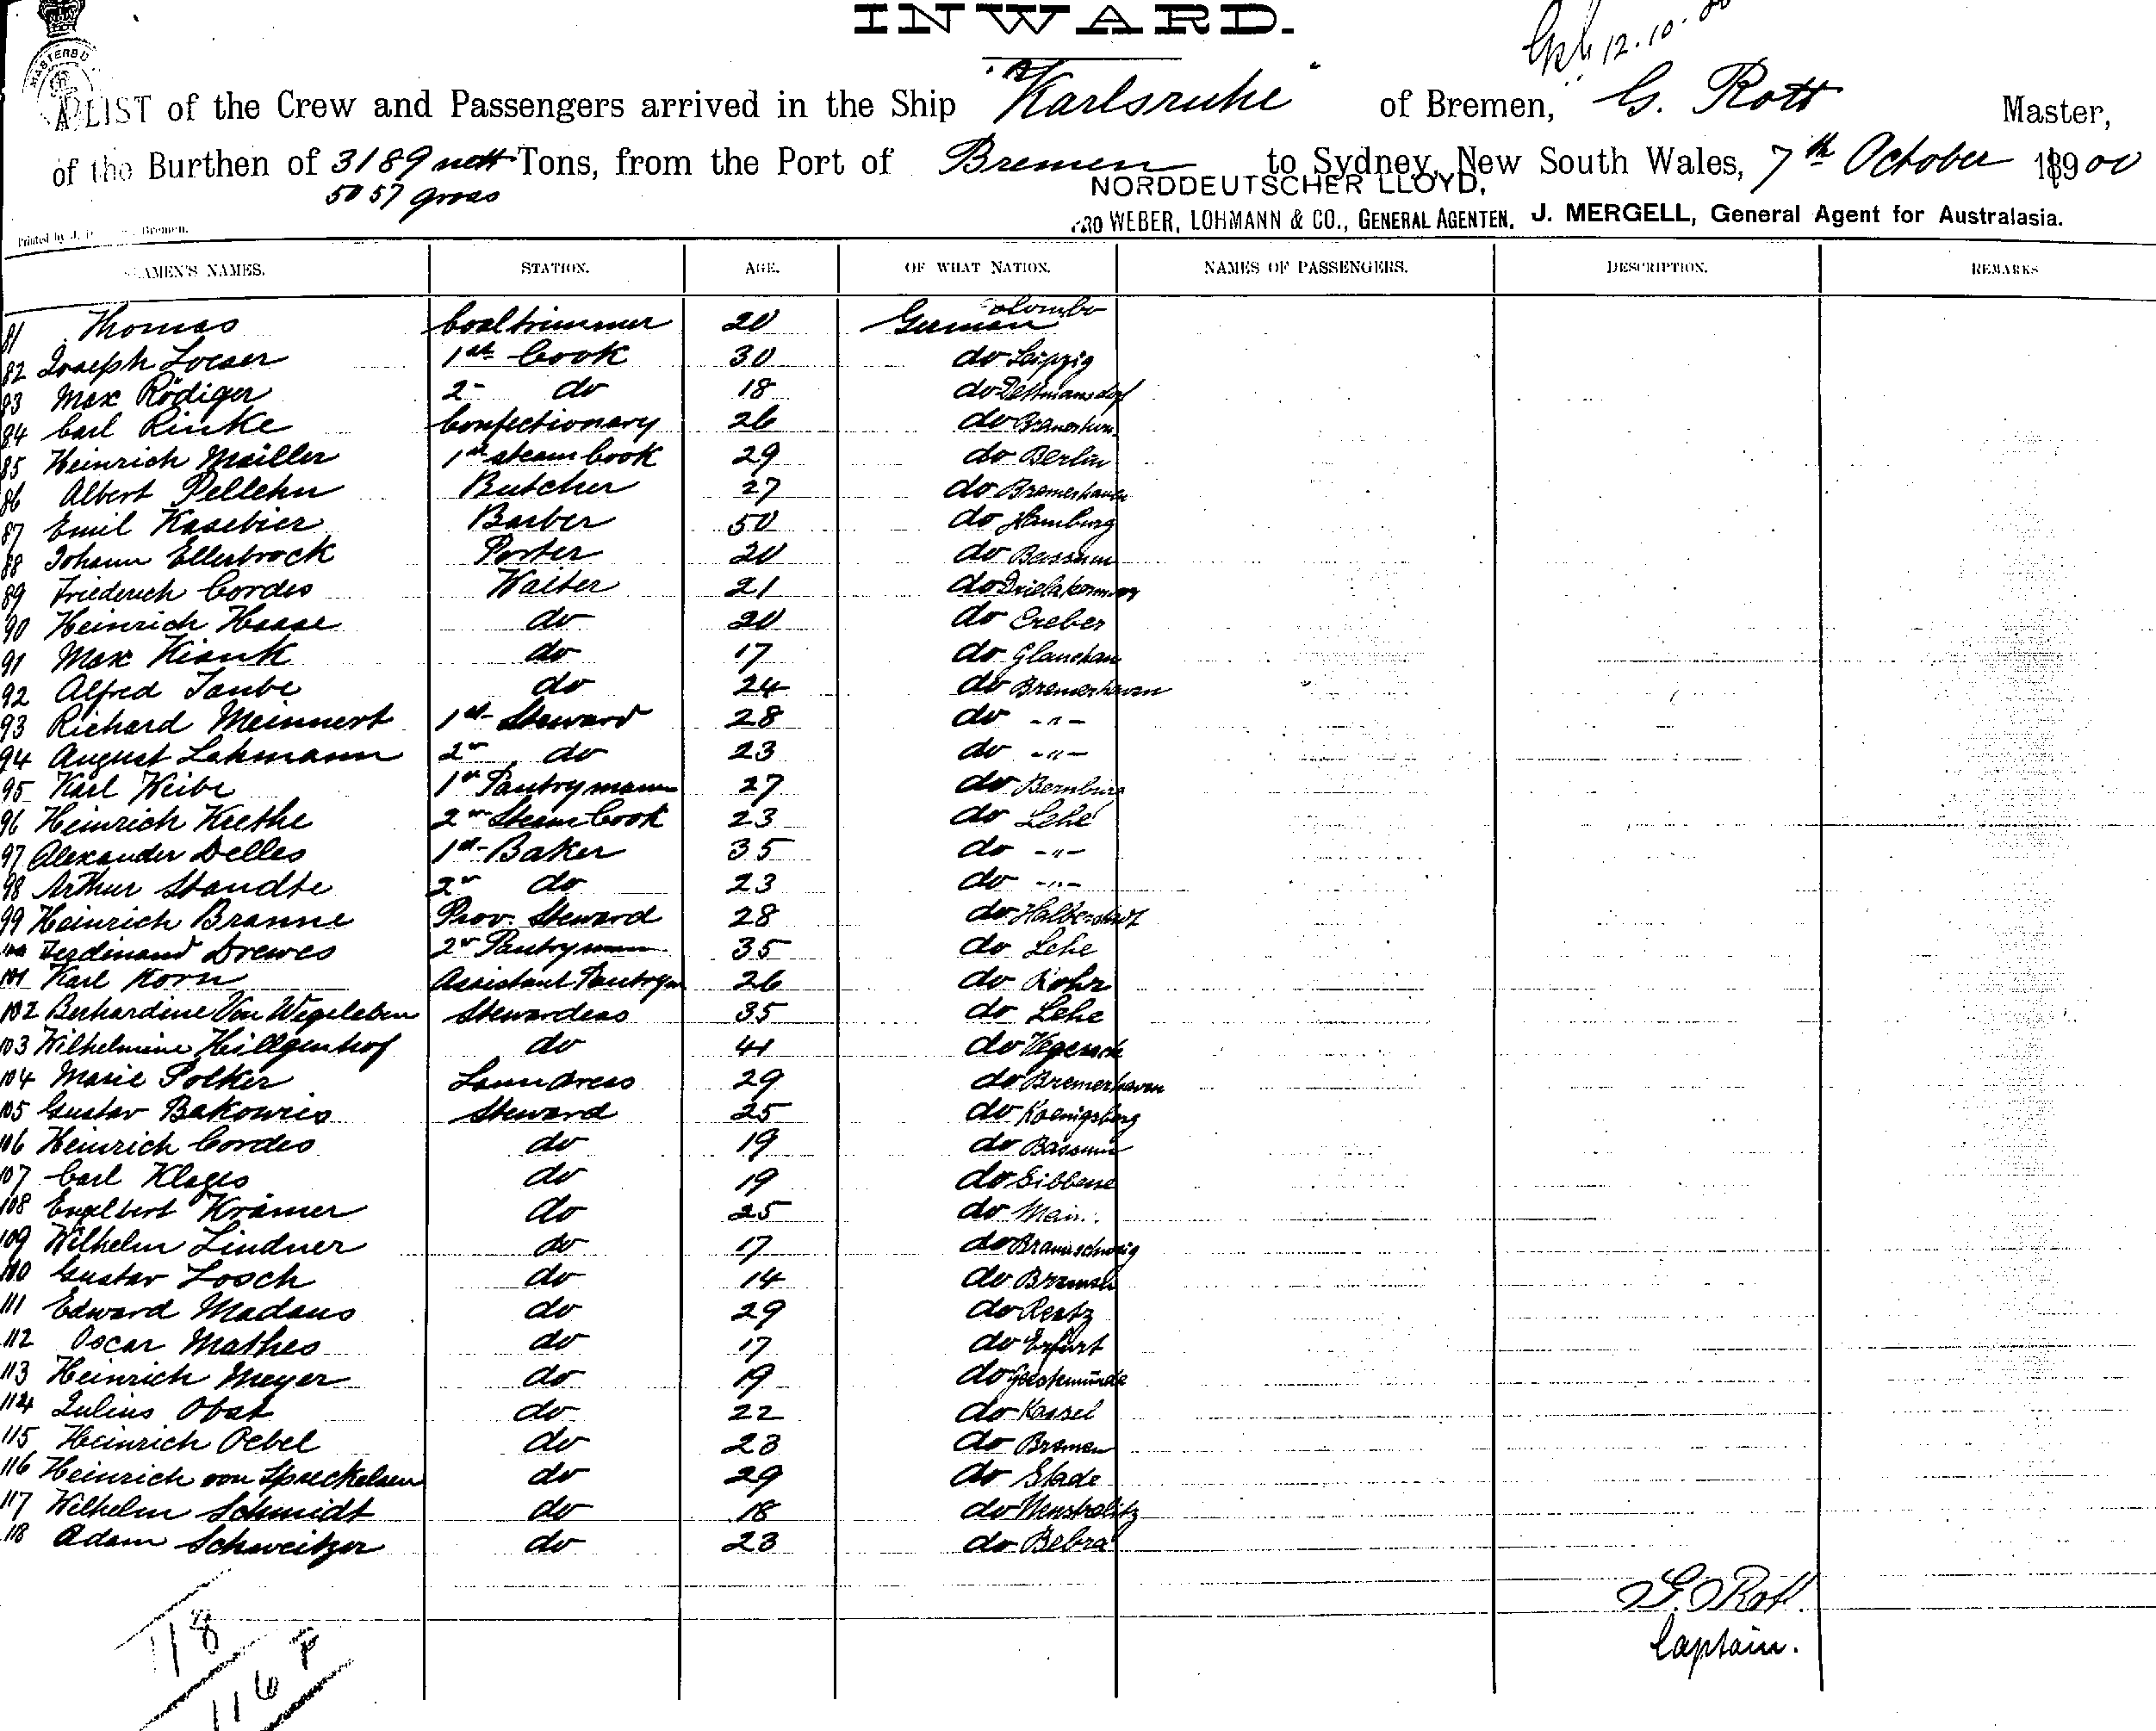 INWARD.
12.10.00
A LIST of the Crew and Passengers arrived in the Ship "Karlsruhe" of Bremen, G. Rott Master,
of the Burthen of 3189 nett Tons, from the Port of Bremen to Sydney, New South Wales, 7th October 1900
5057 gross
NORDDEUTSCHER LLOYD,
PRO WEBER, LOHMANN & CO., GENERAL AGENTEN. J. MERGELL, General Agent for Australasia.
Printed by J. Bremen.
SEAMEN'S NAMES. STATION. AGE. OF WHAT NATION. NAMES OF PASSENGERS. DESCRIPTION. REMARKS
81 Thomas Coaltrimmer 20 German Colombo
82 Joseph Loeser 1st Cook 30 do Leipzig
83 Max Rödiger 2n do 18 do Dettmansdorf
84 Carl Rinke Confectionary 26 do
85 Heinrich Müller 1st steam Cook 29 do Berlin
86 Albert Pellehn Butcher 27 do Bremerhaven
87 Emil Kasebier Barber 50 do Hamburg
88 Johann Ellerbrock Porter 20 do Bassum
89 Friederich Cordes Waiter 21 do
90 Heinrich Haase do 20 do
91 Max Kiank do 17 do Glauchau
92 Alfred Taube do 24 do Bremerhaven
93 Richard Meinnert 1st Steward 28 do -"-
94 August Lehmann 2n do 23 do -"-
95 Karl Weibe 1st Pantrymann 27 do Bernburg
96 Heinrich Kuethe 2n Steam Cook 23 do Lehe
97 Alexander Delles 1st Baker 35 do -"-
98 Arthur Standte 2n do 23 do -"-
99 Heinrich Branne Prov. Steward 28 do Halberstadt
100 Ferdinand Drewes 2n Pantrymann 35 do Lehe
101 Karl Korn Assistant Pantrym 26 do Rohr
102 Berhardine Von Wegeleben Stewardess 35 do Lehe
103 Wilhelmine Hillgenhof do 41 do Vegesack
104 Marie Polker Laundress 29 do Bremerhaven
105 Gustav Bakowris Steward 25 do Koenigsberg
106 Heinrich Cordes do 19 do Bassum
107 Carl Klages do 19 do
108 Engelbert Krämer do 25 do
109 Wilhelm Lindner do 17 do Braunschweig
110 Gustav Losch do 14 do
111 Edward Madaus do 29 do
112 Oscar Mathes do 17 do Erfurt
113 Heinrich Meyer do 19 do Geestemünde
114 Julius Obst do 22 do Kassel
115 Heinrich Oebel do 23 do Bremen
116 Heinrich von Spreckelsen do 29 do Stade
117 Wilhelm Schmidt do 18 do Neustrelitz
118 Adam Schweitzer do 23 do Bebra
G. Rott.
Captain.
118
116 F